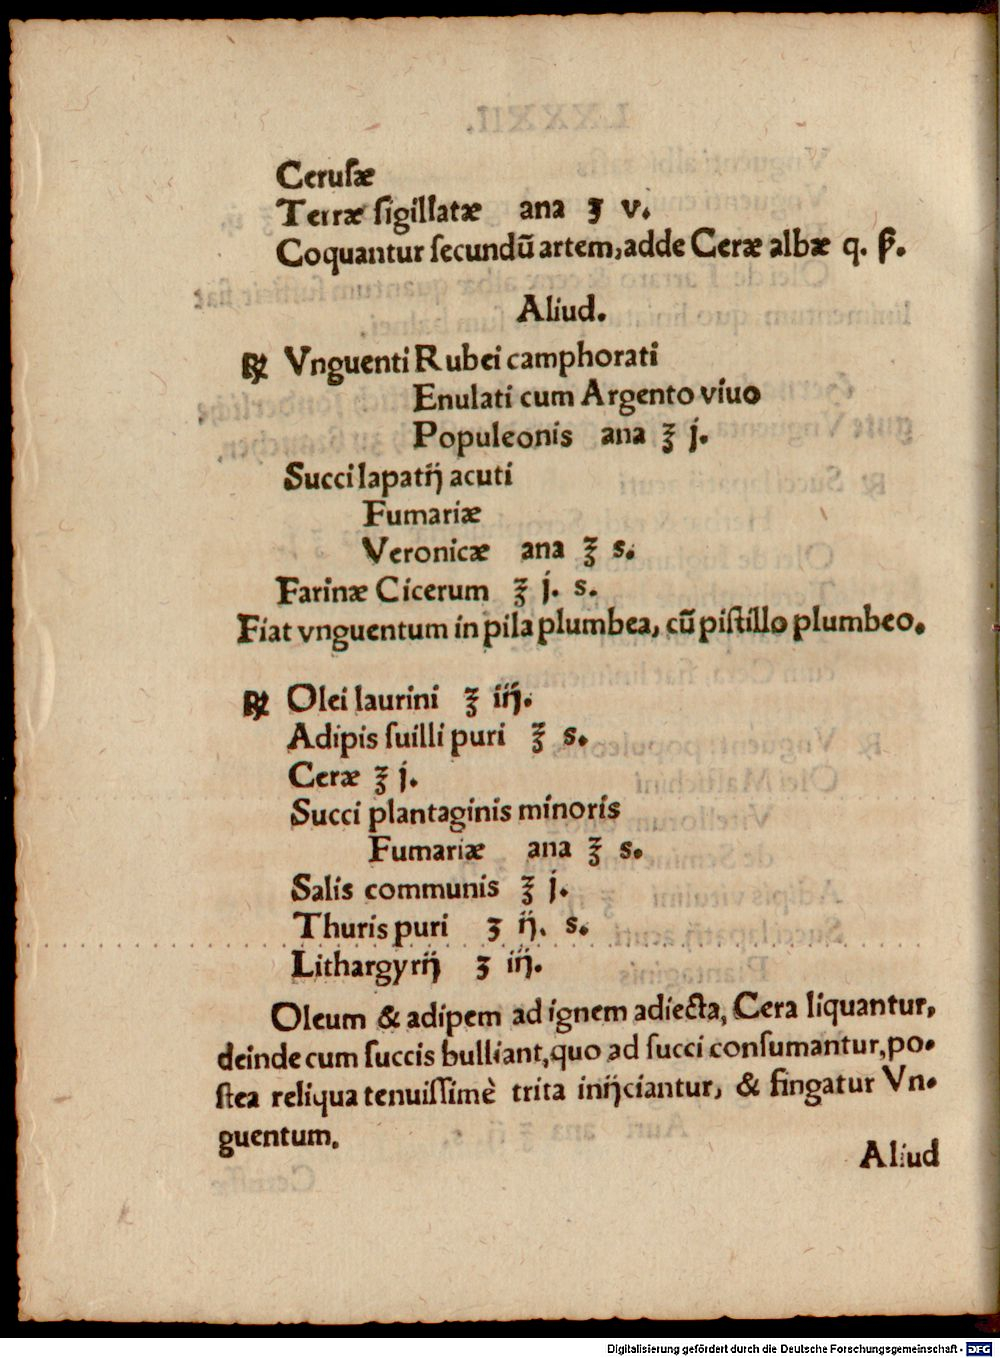 Cerusæ
Terræ sigillatæ ana ʒ v.
Coquantur secundũ artem, adde Ceræ albæ q. ß.
Aliud.
℞ Vnguenti Rubei camphorati
Enulati cum Argento viuo
Populeonis ana ℥ j.
Succi lapatij acuti
Fumariæ
Veronicæ ana ℥ s.
Farinæ Cicerum ℥ j. s.
Fiat vnguentum in pila plumbea, cũ pistillo plumbeo.
℞ Olei laurini ℥ iij.
Adipis suilli puri ℥ s.
Ceræ ℥ j.
Succi plantaginis minoris
Fumariæ ana ℥ s.
Salis communis ℥ j.
Thuris puri ʒ ij. s.
Lithargyrij ʒ iij.
Oleum & adipem ad ignem adiecta, Cera liquantur,
deinde cum succis bulliant, quo ad succi consumantur, po-
stea reliqua tenuissimè trita inijciantur, & fingatur Vn-
guentum.
Aliud
Digitalisierung gefördert durch die Deutsche Forschungsgemeinschaft - DFG